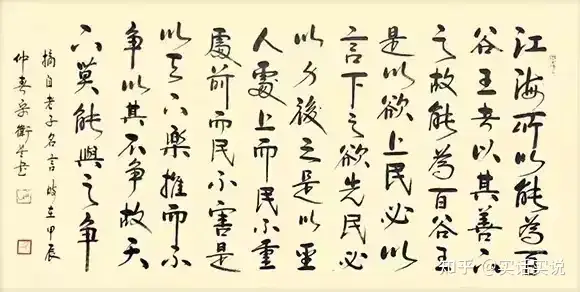 江海所以能為百
谷王者以其善下
之故能為百谷王
是以欲上民必以
言下之欲先民必
以身後之是以聖
人處上而民不重
處前而民不害是
以天下樂推而不
争以其不争故天
下莫能與之争
摘自老子名言時在甲辰
仲春衛书
知乎 @实话实说